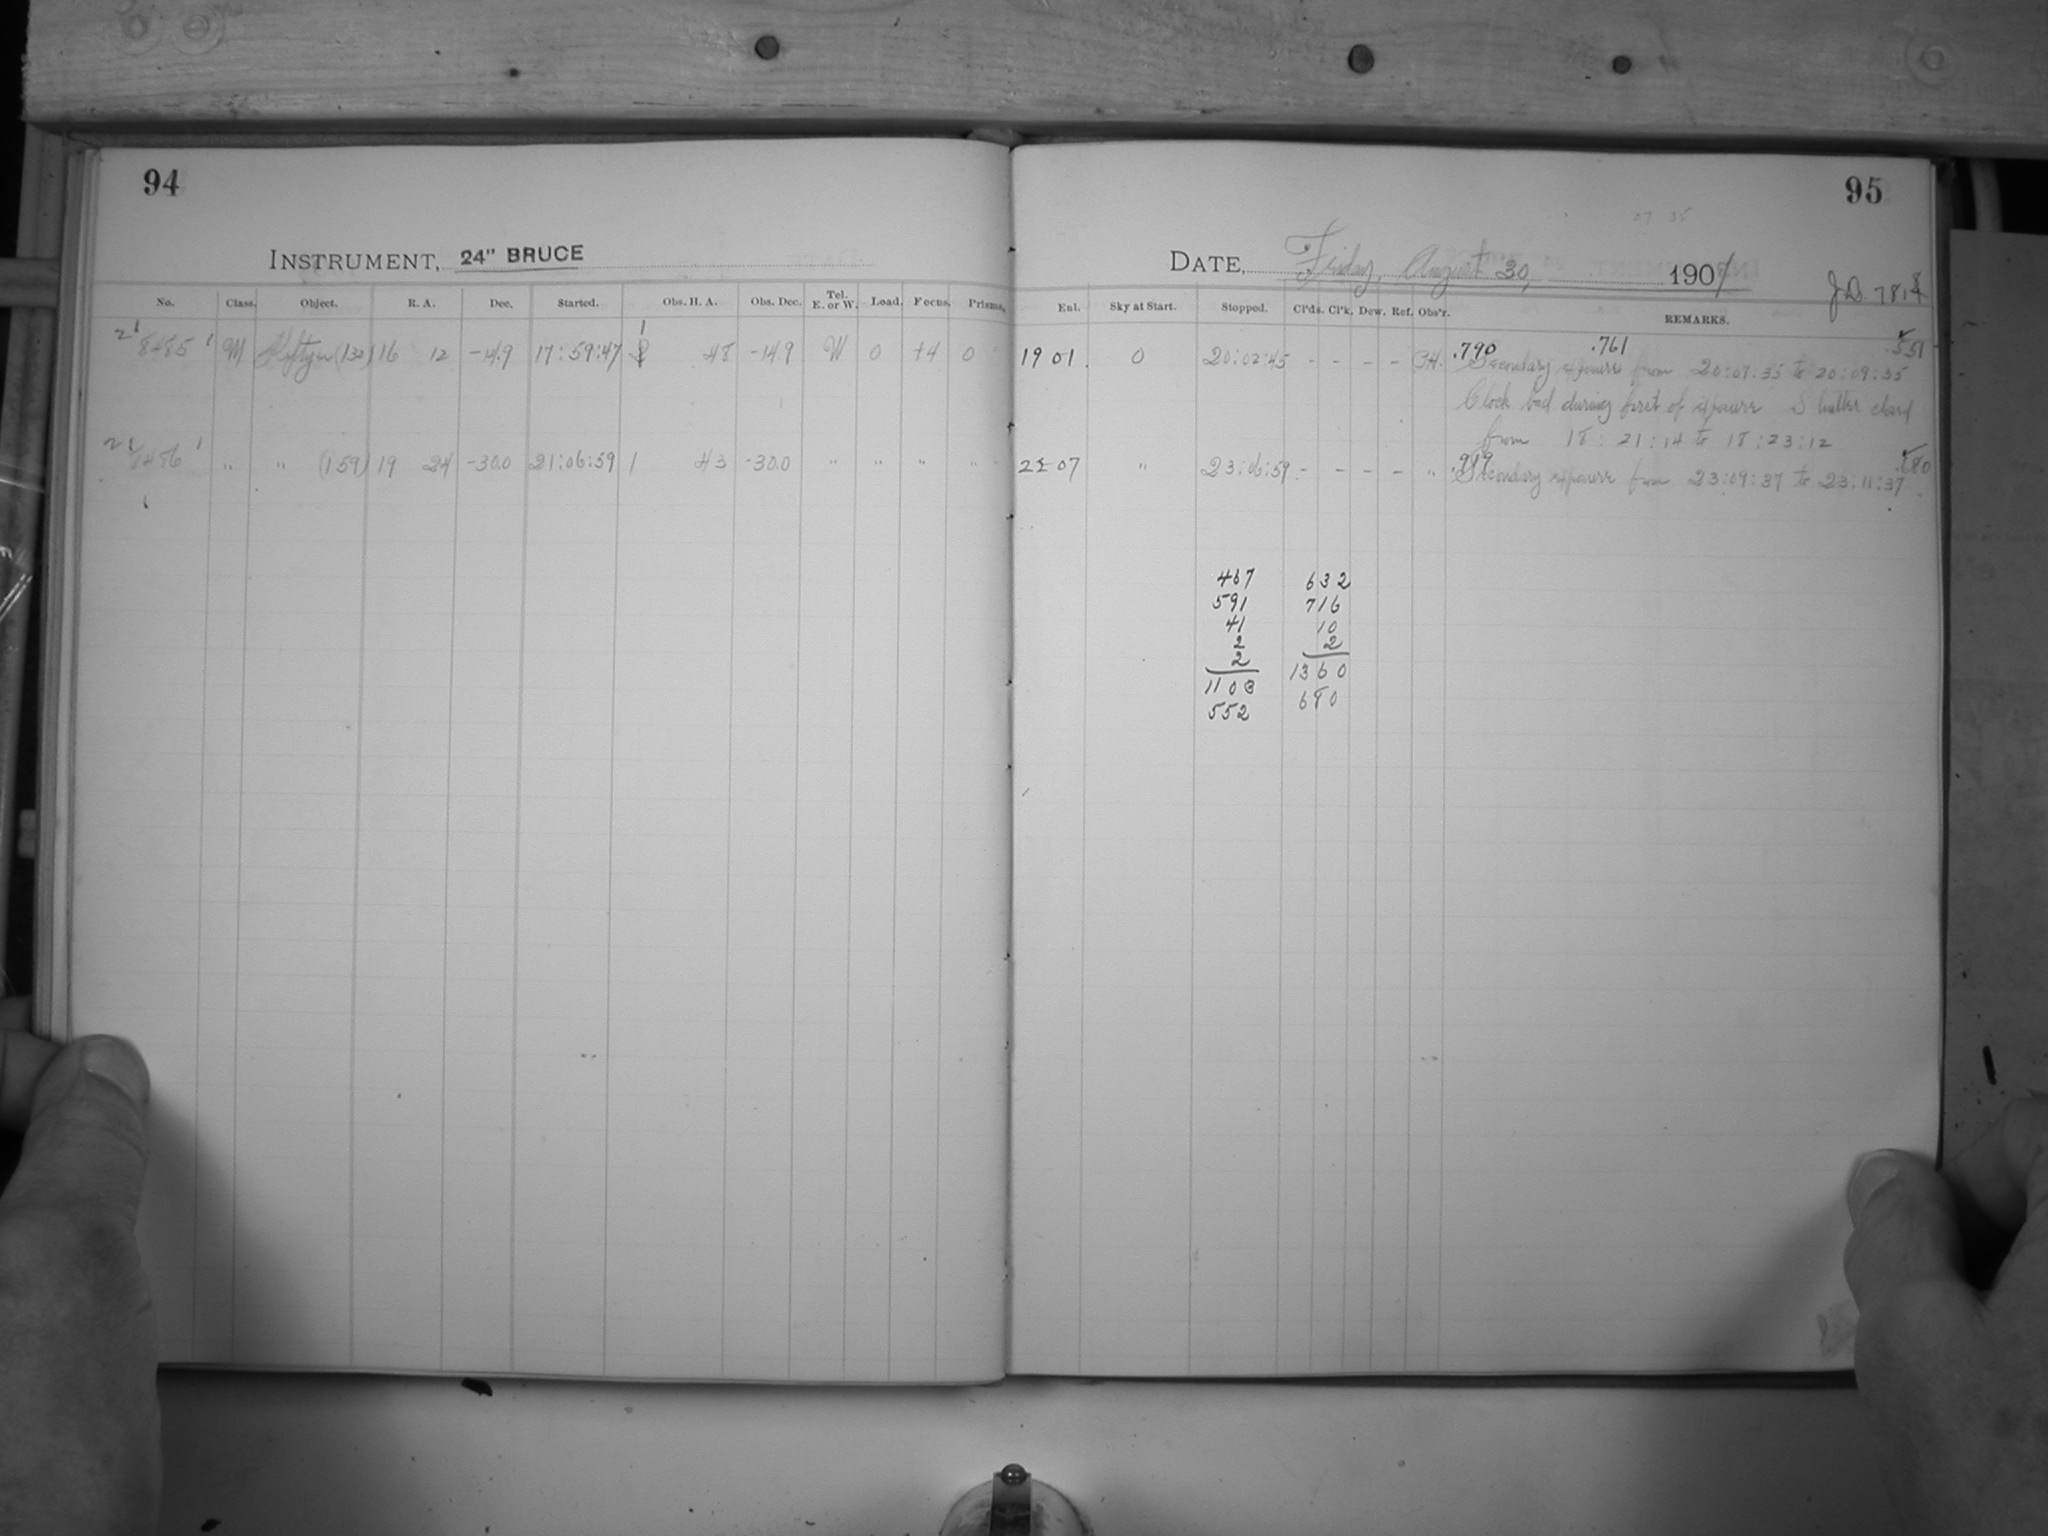 94
INSTRUMENT, 24" BRUCE
No. Class. Object. R. A. Dec. Started. Obs. H. A. Obs. Dec. Tel. E. or W. Load. Focus. Prisms.
8485 M (132) 16 12 -14.9 17:59:47 1 48 -14.9 W 0 +4 0
8486 " " (159) 19 24 -30.0 21:06:59 1 43 -30.0 " " " "
95
DATE, Friday, August 30, 1907
J.D. 781
Enl. Sky at Start. Stopped. Cl'ds. Cl'k. Dew. Ref. Obs'r. REMARKS.
.790 .761 .551
19 01 0 20:02:45 - - - - Secondary exposure from 20:07:35 to 20:09:35
Clock bad during first of exposure Shutter closed
from 18:21:14 to 18:23:12
.919 .680
22 07 " 23:06:59 - - - - " Secondary exposure from 23:09:37 to 23:11:37
467 632
591 716
41 10
2 2
2
1103 1360
552 680